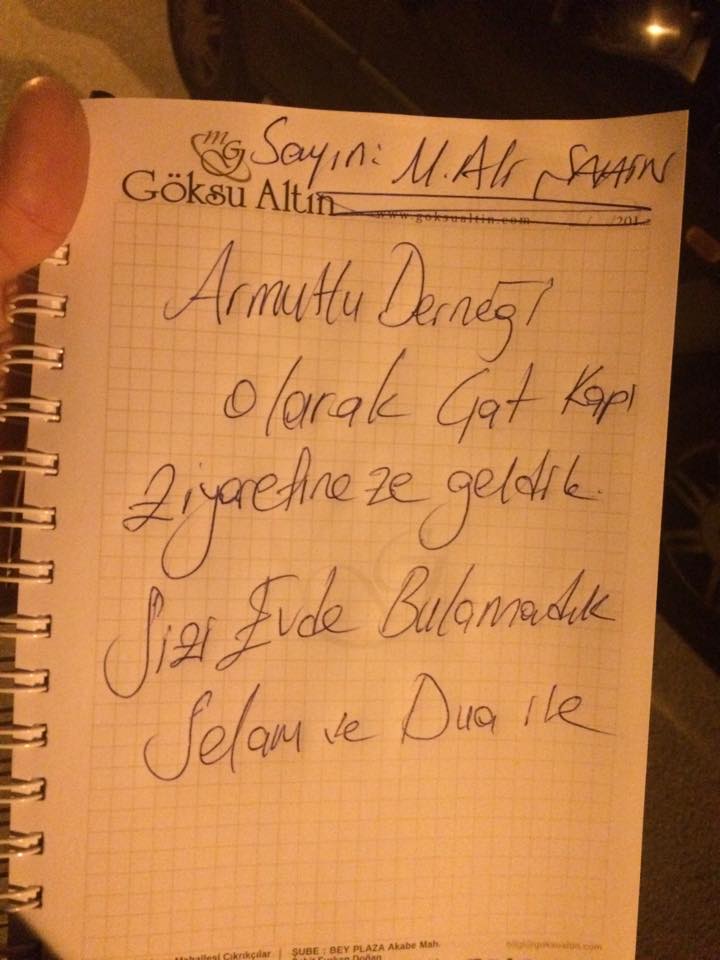 Sayın: M. Ali ŞAHİN
Göksu Altın
www.goksualtin.com
/ /201
Armutlu Derneği
olarak Çat Kapı
Ziyaretineze geldik.
Sizi Evde Bulamadık
Selam ve Dua ile
Mahallesi Çıkrıkçılar | ŞUBE : BEY PLAZA Akabe Mah.
bilgi@goksualtin.com
Şehit Furkan Doğan